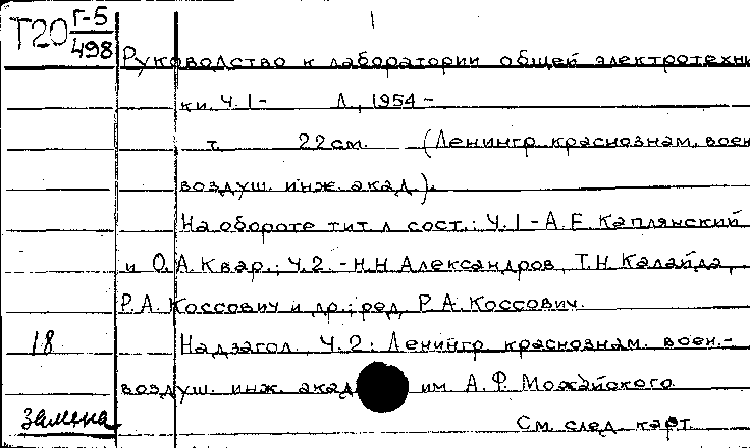 Т20 Г-5
498
Руководство к лаборатории общей электротехни
ки. Ч. 1 - Л., 1954 -
т. 22 см. (Ленингр. краснознам. воен.
воздуш. инж. акад.).
На обороте тит. л. сост.: Ч. 1 - А.Е. Каплянский
и О.А. Квар.; Ч. 2. - Н.Н. Александров, Т.Н. Калайда,
Р.А. Коссович и др.; ред. Р.А. Коссович.
18 Надзагол. Ч. 2: Ленингр. краснознам. воен.-
воздуш. инж. акад им. А.Ф. Можайского
замена См. след. карт.